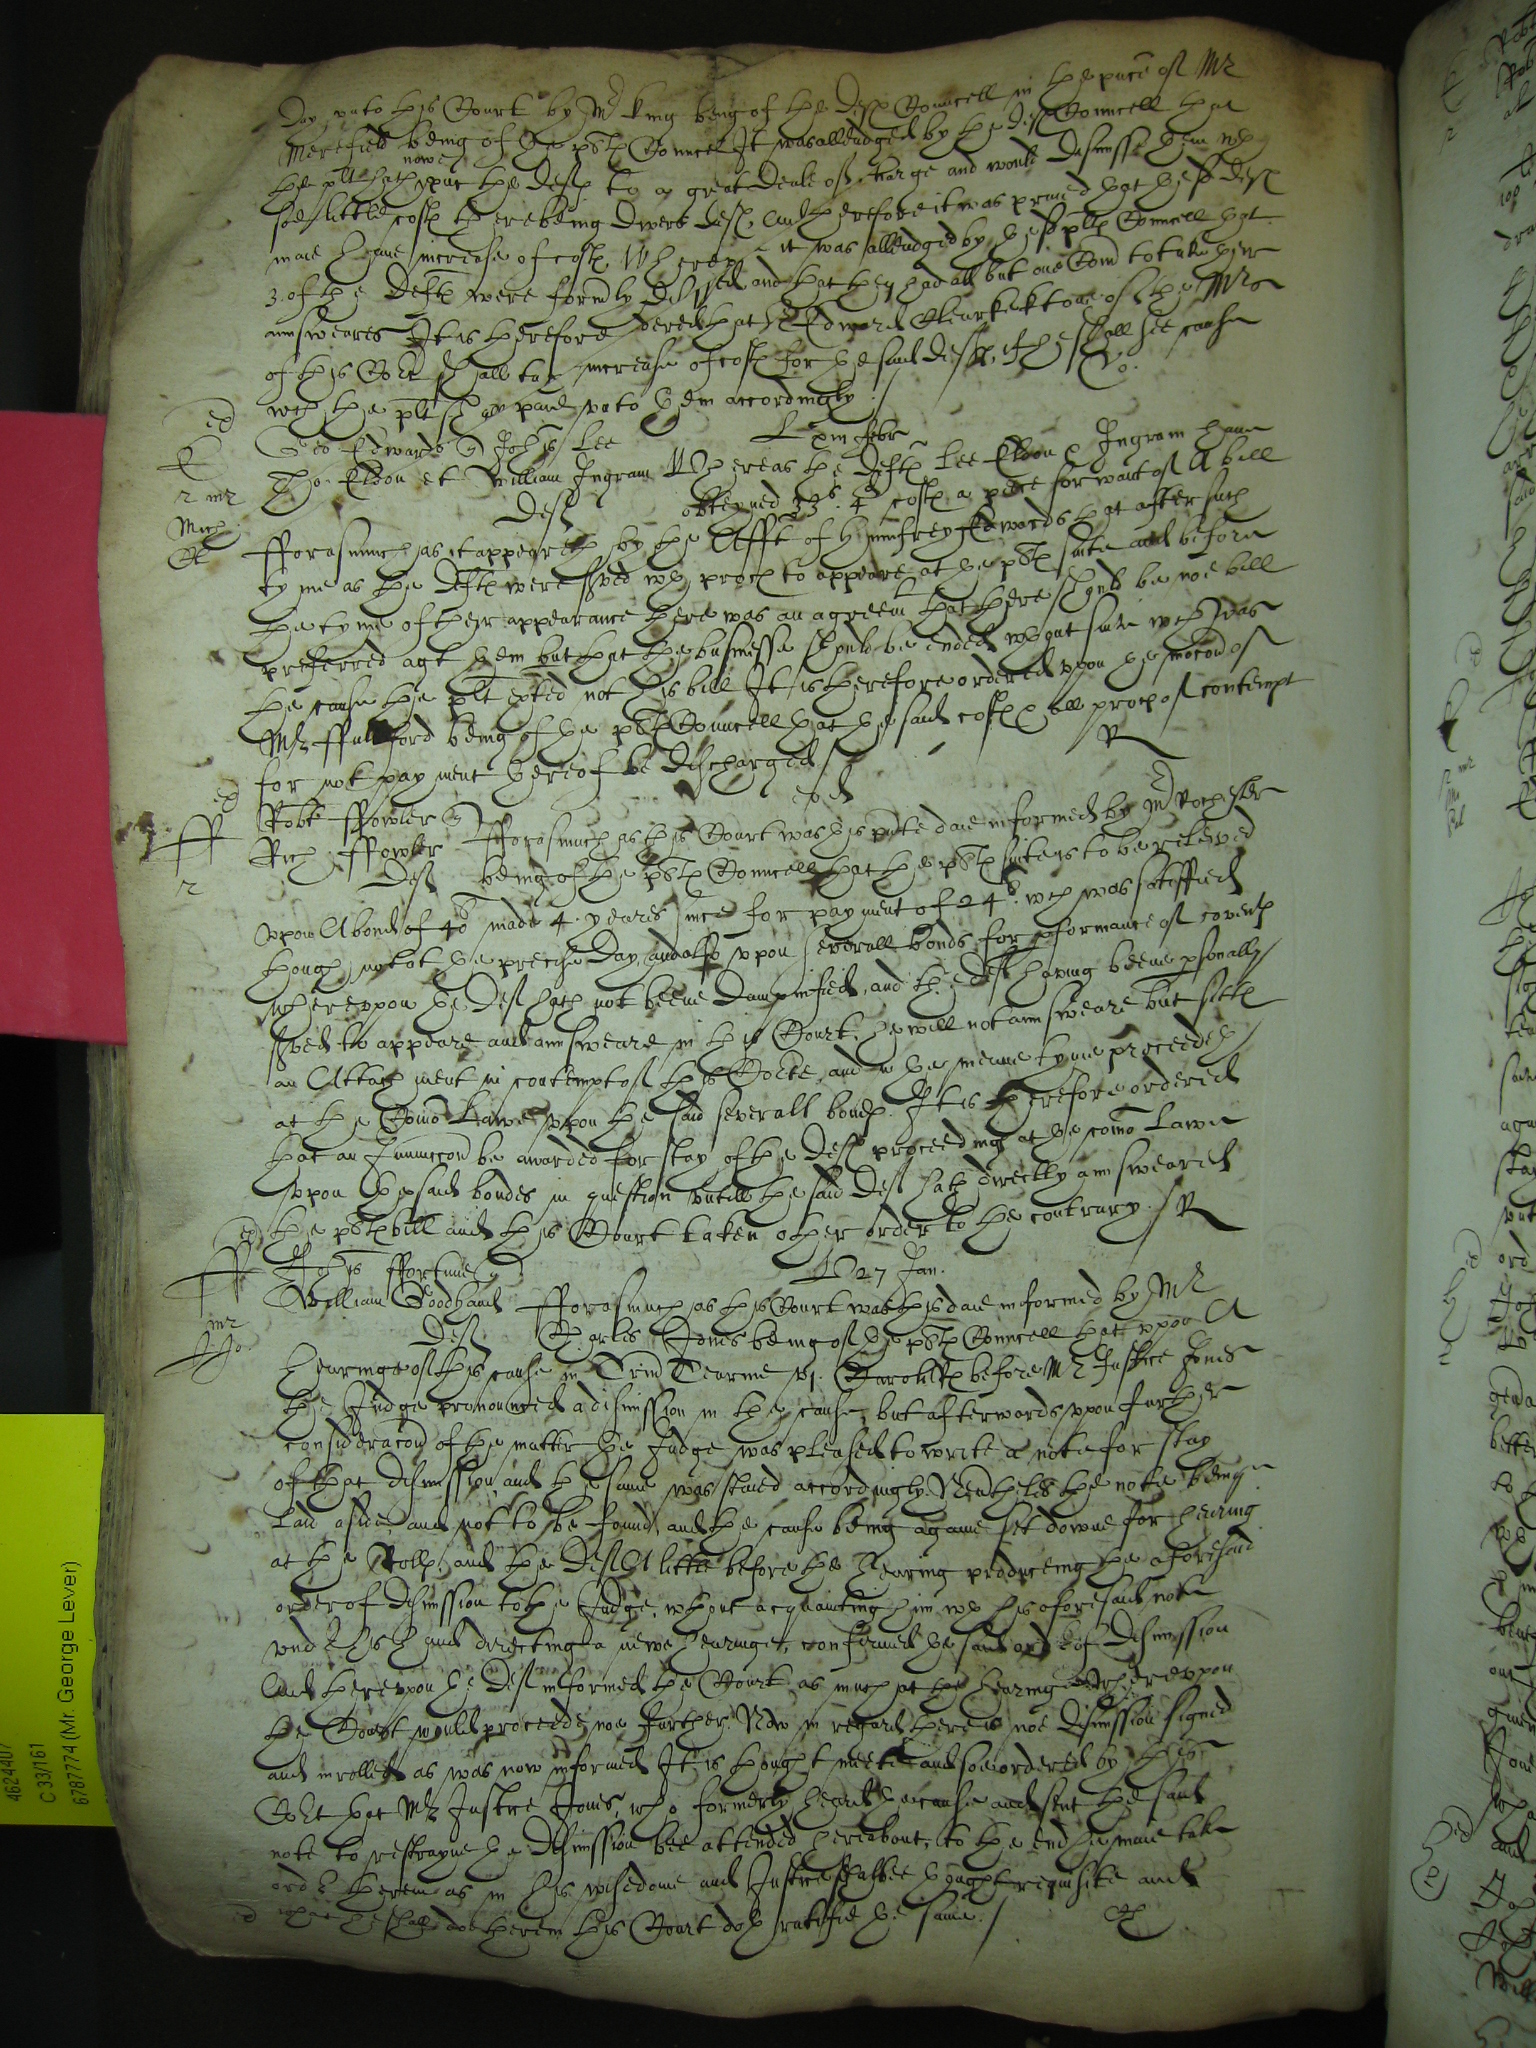 day vnto this Court by Mr King being of the deftes Councell in the pnce of Mr
Merefield being of the plts Councel It was alleadged by the deftes Councell that
the plt hath nowe put the deftes to a great deale of charge and would dismisse them wth
soe little costes there being divers deftes And therefore it was prayed that the sd deftes
maie have increase of costes Whereas it was alleadged by the sd pltes Councell that
3 of the deftes were formly and that they had all but one Com to take their
answeares It is therefore ordered that Sr Edward Clearke kt one of the Mrs
of this Cort shall tax increase of costes for the said deftes, if he shall see cause
wch the plt is to pay vnto them accordingly /
Geo Edwards q Johis Lee
Tho. Eldon et William Ingram
Deftes
L xiii Febr
Whereas the deftes Lee Eldon & Ingram have
obteyned 33s 4d costes a peece for want of A bill
fforasmuch as it appeareth by the Afft of Humfrey Edwards that after such
tyme as the deftes were served wth proces to appeare at the pltes suite and before
the tyme of their appearance there was an agreemt that there should be noe bill
preferred agt them but that the businesse should be ended wthout suite wch was
the cause the plt exted not his bill It is therefore ordered vpon the mocon of
Mr ffullford being of the pltes Councell that the said costes & all proces of contempt
for not payment thereof be discharged /
R
Robt ffowler q
Rich ffowler
Deft
eod
fforasmuch as this Court was this pnte daie informed by Mr Rochester
being of the pltes Councell that the pltes suite is to be releived
vpon A bond of 40s made 4 yeares since for payment of 24s wch was satisfied
though not at the precise day, and also vpon severall bonds for pformance of covents
wherevpon the deft hath not beene dampnified, and the deft having beene psonally
served to appeare and answeare in this Court, he will not answeare but sitts
an Attachment in contempt of this Corte, and in the meane tyme proceedeth
at the Comon Lawe vpon the said severall bonds. It is therefore ordered
that an Iniunccon be awarded for stay of the deftes proceeding at the comon Lawe
vpon the said bondes in question vntill the said deft hath directly answeared
the pltes bill and this Court taken other order to the contrary /
R
Johis ffortune q
William Goodhand
Deft
L 27 Jan.
fforasmuch as this Court was this daie informed by Mr
Charles Jones being of the pltes Councell that vpon A
hearinge of this cause in Trin Tearme vj Caroli Rs before Mr Justice Jones
the Judge pronounced a dismission in the cause, but afterwards vpon further
consideracon of the matter the Judge was pleased to write a note for stay
of that dismission and the same was staied accordingly Neuthelesse the note being
laid aside, and not to be found and the cause being againe set downe for hearing
at the Rolles, and the deft A little before the hearing produceing the aforesaid
order of dismission to the Judge, wthout acquainting him wth his aforesaid note
vnder his hand directing a newe hearinge, confirmed the said order of dismission
And therevpon the deft informed the Court as much at the hearing Wherevpon
the Court would proceede noe further. Now in regard there is noe dismission signed
and inrolled as was now informed It is thought meete and soe ordered by this
Cort that Mr Justice Jones, who formerly heard the cause and sent the said
note to restrayne the dismission bee attended thereabout, to the end he maie take
order therein as in his wisedome and Justice shalbee thought requisite and
what he shall doe therein this Court doth ratifie the same. /
4624407
C 33/161
6787774 (Mr. George Lever)